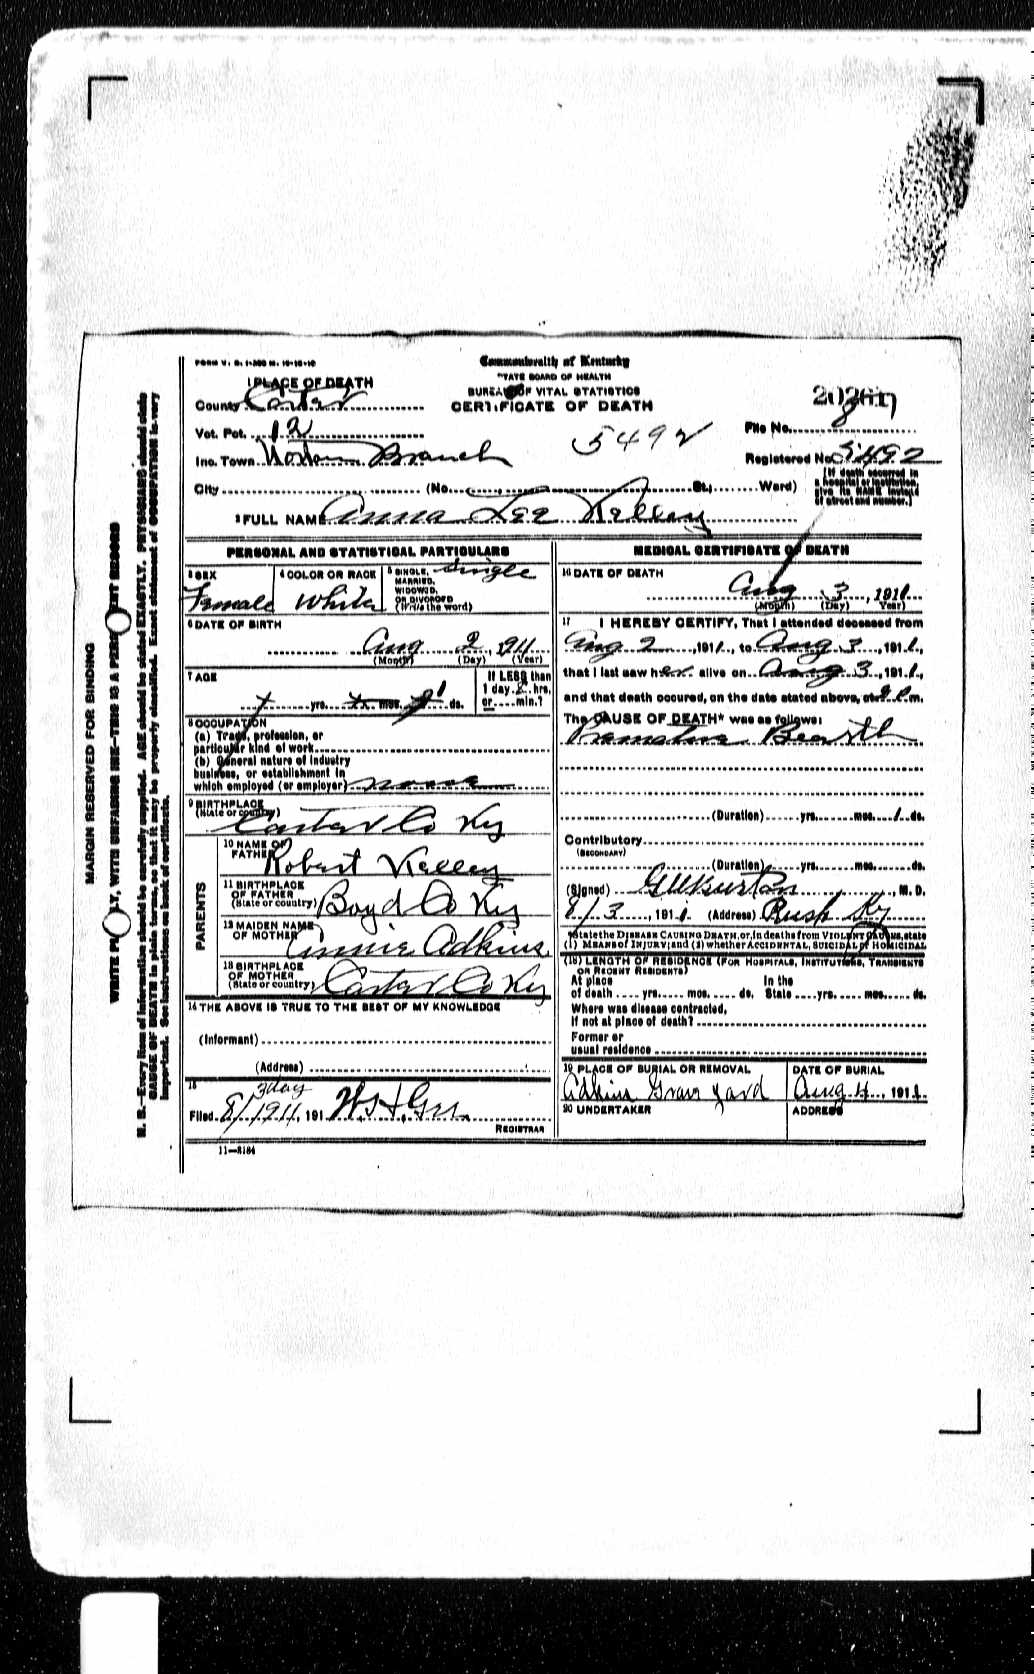 FORM V. S. 1-300 M. 10-10-10
Commonwealth of Kentucky
STATE BOARD OF HEALTH
BUREAU OF VITAL STATISTICS
CERTIFICATE OF DEATH
1 PLACE OF DEATH
County Carter
Vot. Pct. 12
Inc. Town Norton Branch
City (No. St., Ward)
5492
File No.
Registered No. 5492
[If death occurred in
a hospital or institution,
give its NAME instead
of street and number.]
2 FULL NAME Anna Lee Kelley
PERSONAL AND STATISTICAL PARTICULARS
3 SEX
Female
4 COLOR OR RACE
White
5 SINGLE,
MARRIED,
WIDOWED,
OR DIVORCED
(Write the word)
Single
6 DATE OF BIRTH
Aug 2, 1911
(Month) (Day) (Year)
7 AGE
yrs. mos. ds.
If LESS than
1 day hrs.
or min.?
8 OCCUPATION
(a) Trade, profession, or
particular kind of work
(b) General nature of industry
business, or establishment in
which employed (or employer) none
9 BIRTHPLACE
(State or country)
Carter Co Ky
PARENTS
10 NAME OF
FATHER Robert Kelley
11 BIRTHPLACE
OF FATHER
(State or country) Boyd Co Ky
12 MAIDEN NAME
OF MOTHER Annie Adkins
13 BIRTHPLACE
OF MOTHER
(State or country) Carter Co Ky
14 THE ABOVE IS TRUE TO THE BEST OF MY KNOWLEDGE
(Informant)
(Address)
15
3 day
Filed 8/1911, 191
REGISTRAR
11—3184
MEDICAL CERTIFICATE OF DEATH
16 DATE OF DEATH
Aug 3, 1911
(Month) (Day) (Year)
17 I HEREBY CERTIFY, That I attended deceased from
Aug 2, 1911, to Aug 3, 1911,
that I last saw her alive on Aug 3, 1911,
and that death occured, on the date stated above, at m.
The CAUSE OF DEATH* was as follows:
Premature Bearth
(Duration) yrs. mos. 1 ds.
Contributory
(SECONDARY)
(Duration) yrs. mos. ds.
(Signed) , M. D.
8/3, 1911 (Address) Rush Ky
*State the DISEASE CAUSING DEATH, or, in deaths from VIOLENT CAUSES, state
(1) MEANS of INJURY; and (2) whether ACCIDENTAL, SUICIDAL or HOMICIDAL
(18) LENGTH OF RESIDENCE (FOR HOSPITALS, INSTITUTIONS, TRANSIENTS
OR RECENT RESIDENTS)
At place In the
of death yrs. mos. ds. State yrs. mos. ds.
Where was disease contracted,
If not at place of death?
Former or
usual residence
19 PLACE OF BURIAL OR REMOVAL
Adkins Grave yard
DATE OF BURIAL
Aug 4, 1911.
20 UNDERTAKER
ADDRESS
MARGIN RESERVED FOR BINDING
WRITE PLAINLY, WITH UNFADING INK—THIS IS A PERMANENT RECORD
N. B.—Every item of information should be carefully supplied. AGE should be stated EXACTLY. PHYSICIANS should state
CAUSE OF DEATH in plain terms, so that it may be properly classified. Exact statement of OCCUPATION is very
important. See instructions on back of certificate.